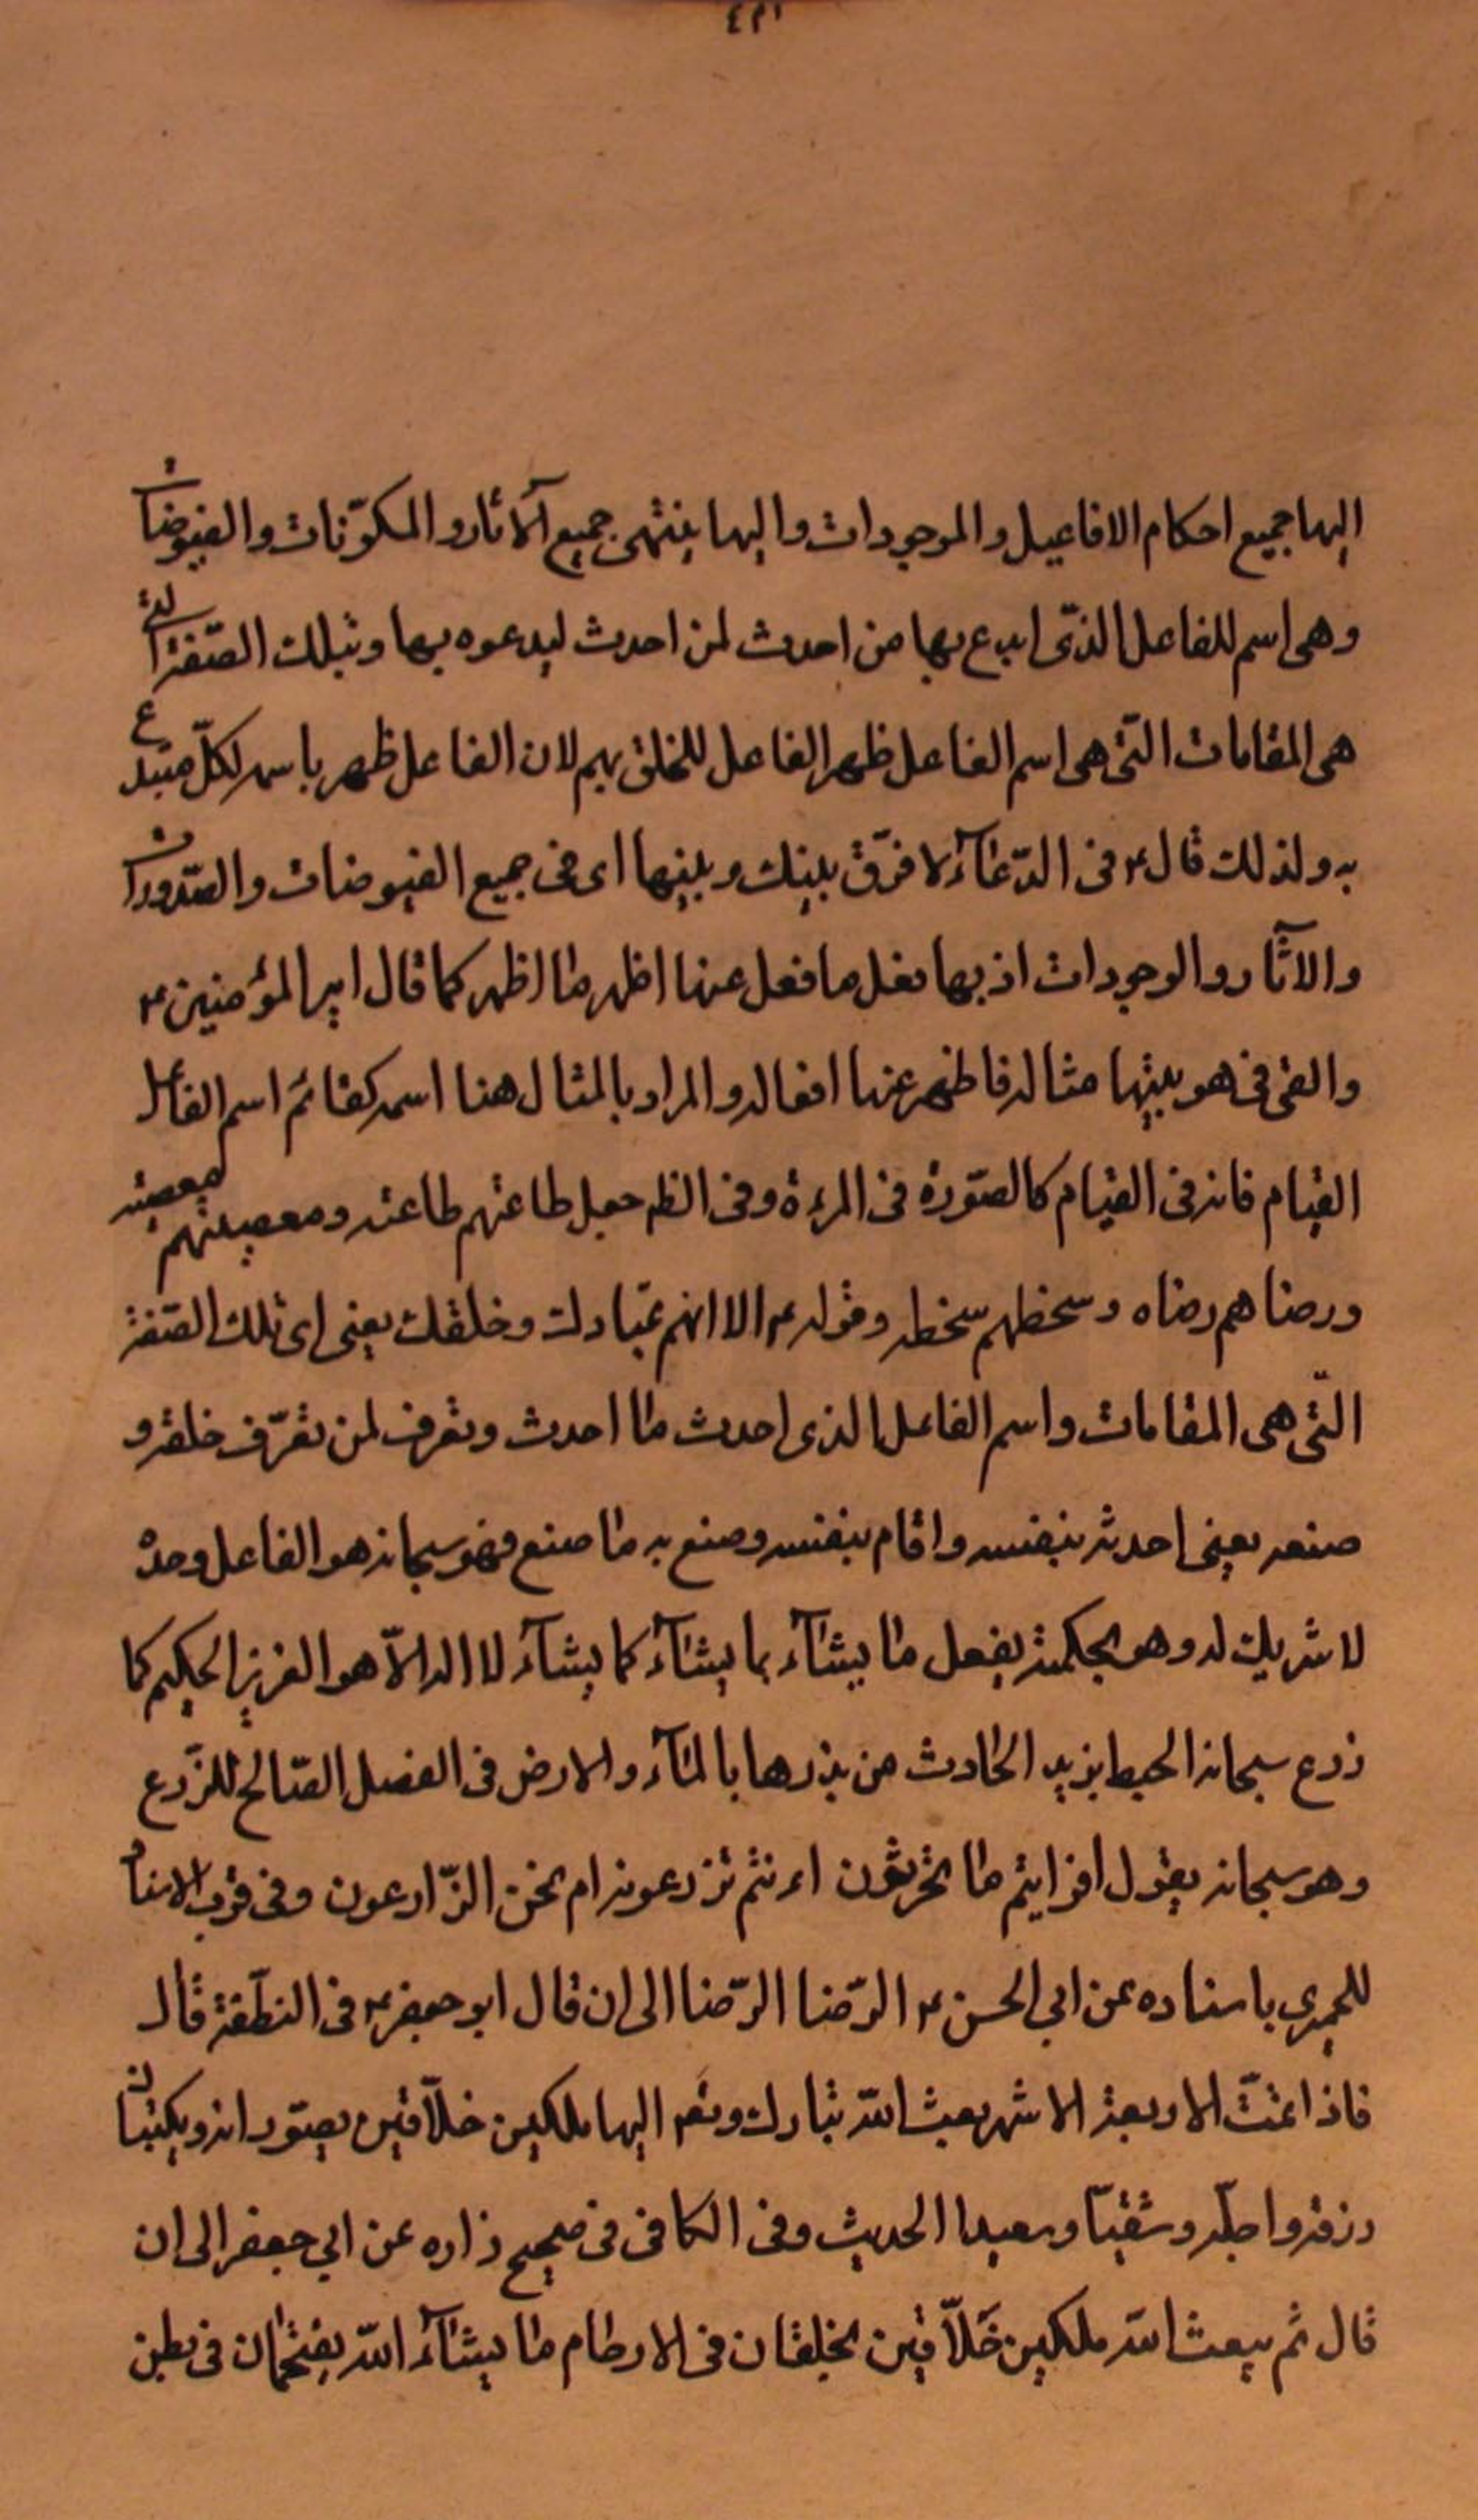 اليها جميع احكام الافاعيل والموجودات واليها ينتهى جميع الآثار والمكوّنات والفيوضات
وهى اسم للفاعل الذى ابدع بها من احدث لمن احدث ليدعوه بها وبتلك الصّفة التى
هى المقامات التى هى اسم الفاعل ظهر الفاعل للخلق بهم لان الفاعل ظهر باسمه لكلّ مبتدع
به ولذلك قال ع فى الدّعآء لا فرق بينك وبينها اى فى جميع الفيوضات والصّدورات
والآثار والوجودات اذ بها فعل ما فعل عنها اظهر ما اظهر كما قال امير المؤمنين ع
والقى فى هويتها مثاله فاظهر عنها افعاله والمراد بالمثال هنا اسمه كقائم اسم الفاعل
القيام فانه فى القيام كالصّورة فى المرءة وفى الظ جعل طاعتهم طاعته ومعصيتهم معصيته
ورضاهم رضاه وسخطهم سخطه وقوله ع الا انهم عبادك وخلقك يعنى اى تلك الصّفة
التّى هى المقامات واسم الفاعل الذى احدث ما احدث وتعرف لمن تعرّف خلقه و
صنعه يعنى احدثه بنفسه واقام بنفسه وصنع به ما صنع فهو سبحانه هو الفاعل وحده
لا شريك له وهو بحكمته يفعل ما يشآء بما يشآء كما يشآء لا اله الاّ هو العزيز الحكيم كما
زرع سبحانه الحبط بزيد الحادث من بذرها بالمآء والارض فى الفصل الصّالح للزّرع
وهو سبحانه يقول افرايتم ما تحرثون ءانتم تزرعونه ام نحن الزّارعون وفى قرب الاسناد
للحميرى باسناده عن ابي الحسن ع الرّضا الرّضا الى ان قال ابو جعفر ع فى النطفة قال
فاذا تمّت الاربعة الاشهر بعث الله تبارك وتع اليها ملكين خلاّقين يصوّرانه ويكتبان
رزقه واجله وشقيّا وسعيدا الحديث وفى الكافى فى صحيح زراره عن ابي جعفر الى ان
قال ثم يبعث الله ملكين خَلاّقين يخلقان فى الارحام ما يشآء الله يقتحمان فى بطن